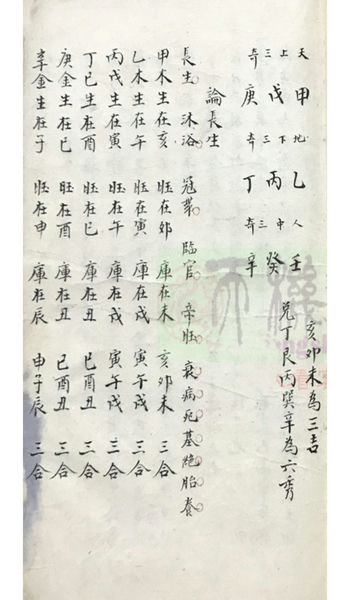 亥卯未為三吉
兌丁艮丙巽辛為六秀
天上三奇
甲戊庚
地下三奇
乙丙丁
人中三奇
壬癸辛
論長生
長生沐浴冠帶臨官帝旺衰病死墓絕胎養
甲木生在亥 旺在卯 庫在未 亥卯未 三合
乙木生在午 旺在寅 庫在戌 寅午戌 三合
丙戊生在寅 旺在午 庫在戌 寅午戌 三合
丁己生在酉 旺在巳 庫在丑 巳酉丑 三合
庚金生在巳 旺在酉 庫在丑 巳酉丑 三合
辛金生在子 旺在申 庫在辰 申子辰 三合